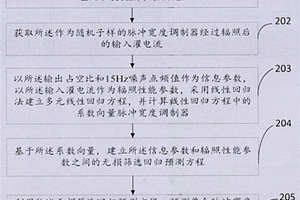 202
获取所述作为随机子样的脉冲宽度调制器经过辐照后
的输入灌电流
203
以所述输出占空比和15Hz噪声点频值作为信息参数,
以所述输入灌电流作为辐照性能参数,采用线性回归
法建立多元线性回归方程,并计算线性回归方程中的
系数向量脉冲宽度调制器
204
基于所述系数向量,建立所述信息参数和辐照性能参
数之间的无损筛选回归预测方程
205